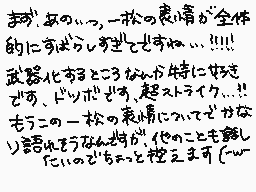 まず、あのぃっ、一松の表情が全体
的にすばらしすぎてですね…!!!!
武器化するところなんか特に好き
です、ドツボです、超ストライク…!!
もうこの一松の表情についてでかな
り語れそうなんですが、他のことも話し
たいのでちょっと控えます(-w-